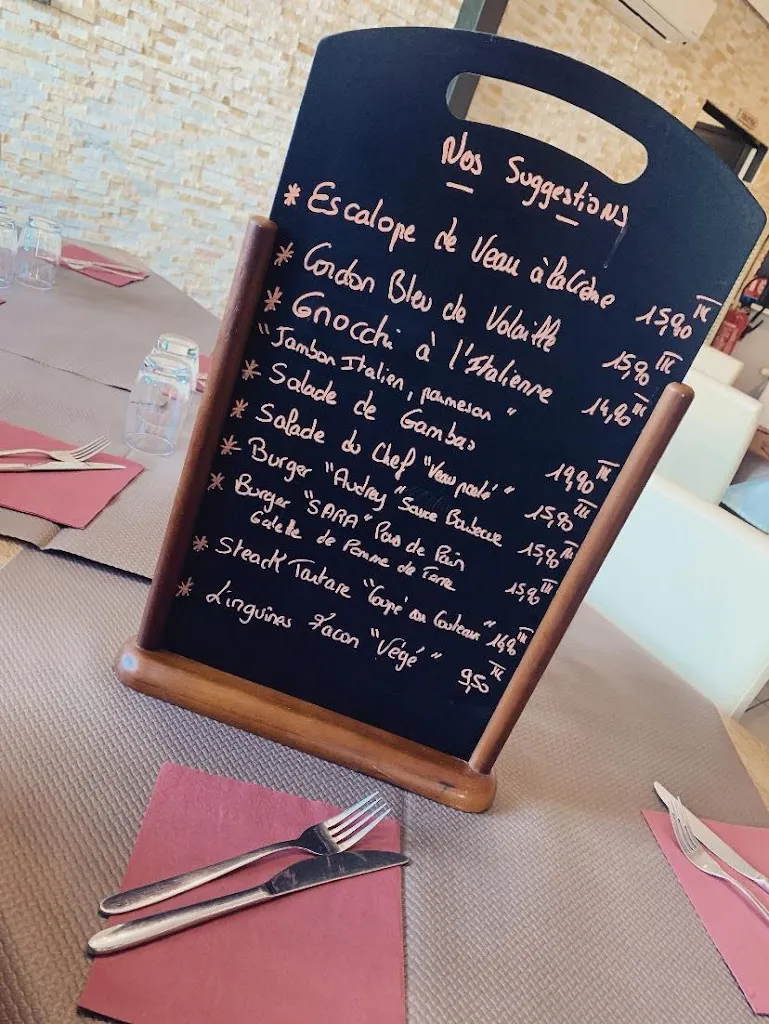 Nos Suggestions
* Escalope de Veau à la Crème 15,90 TTC
* Cordon Bleu de Volaille 15,90 TTC
* Gnocchi à l'Italienne 14,90 TTC
"Jambon Italien, parmesan"
* Salade de Gambas 19,90 TTC
* Salade du Chef "Veau pané" 15,90 TTC
* Burger "Audrey" Sauce Barbecue 15,90 TTC
* Burger "SARA" Pas de Pain 15,90 TTC
Galette de Pomme de Terre
* Steack Tartare "Coupé au Couteaux" 16,90 TTC
* Linguines Facon "Végé" 9,50 TTC